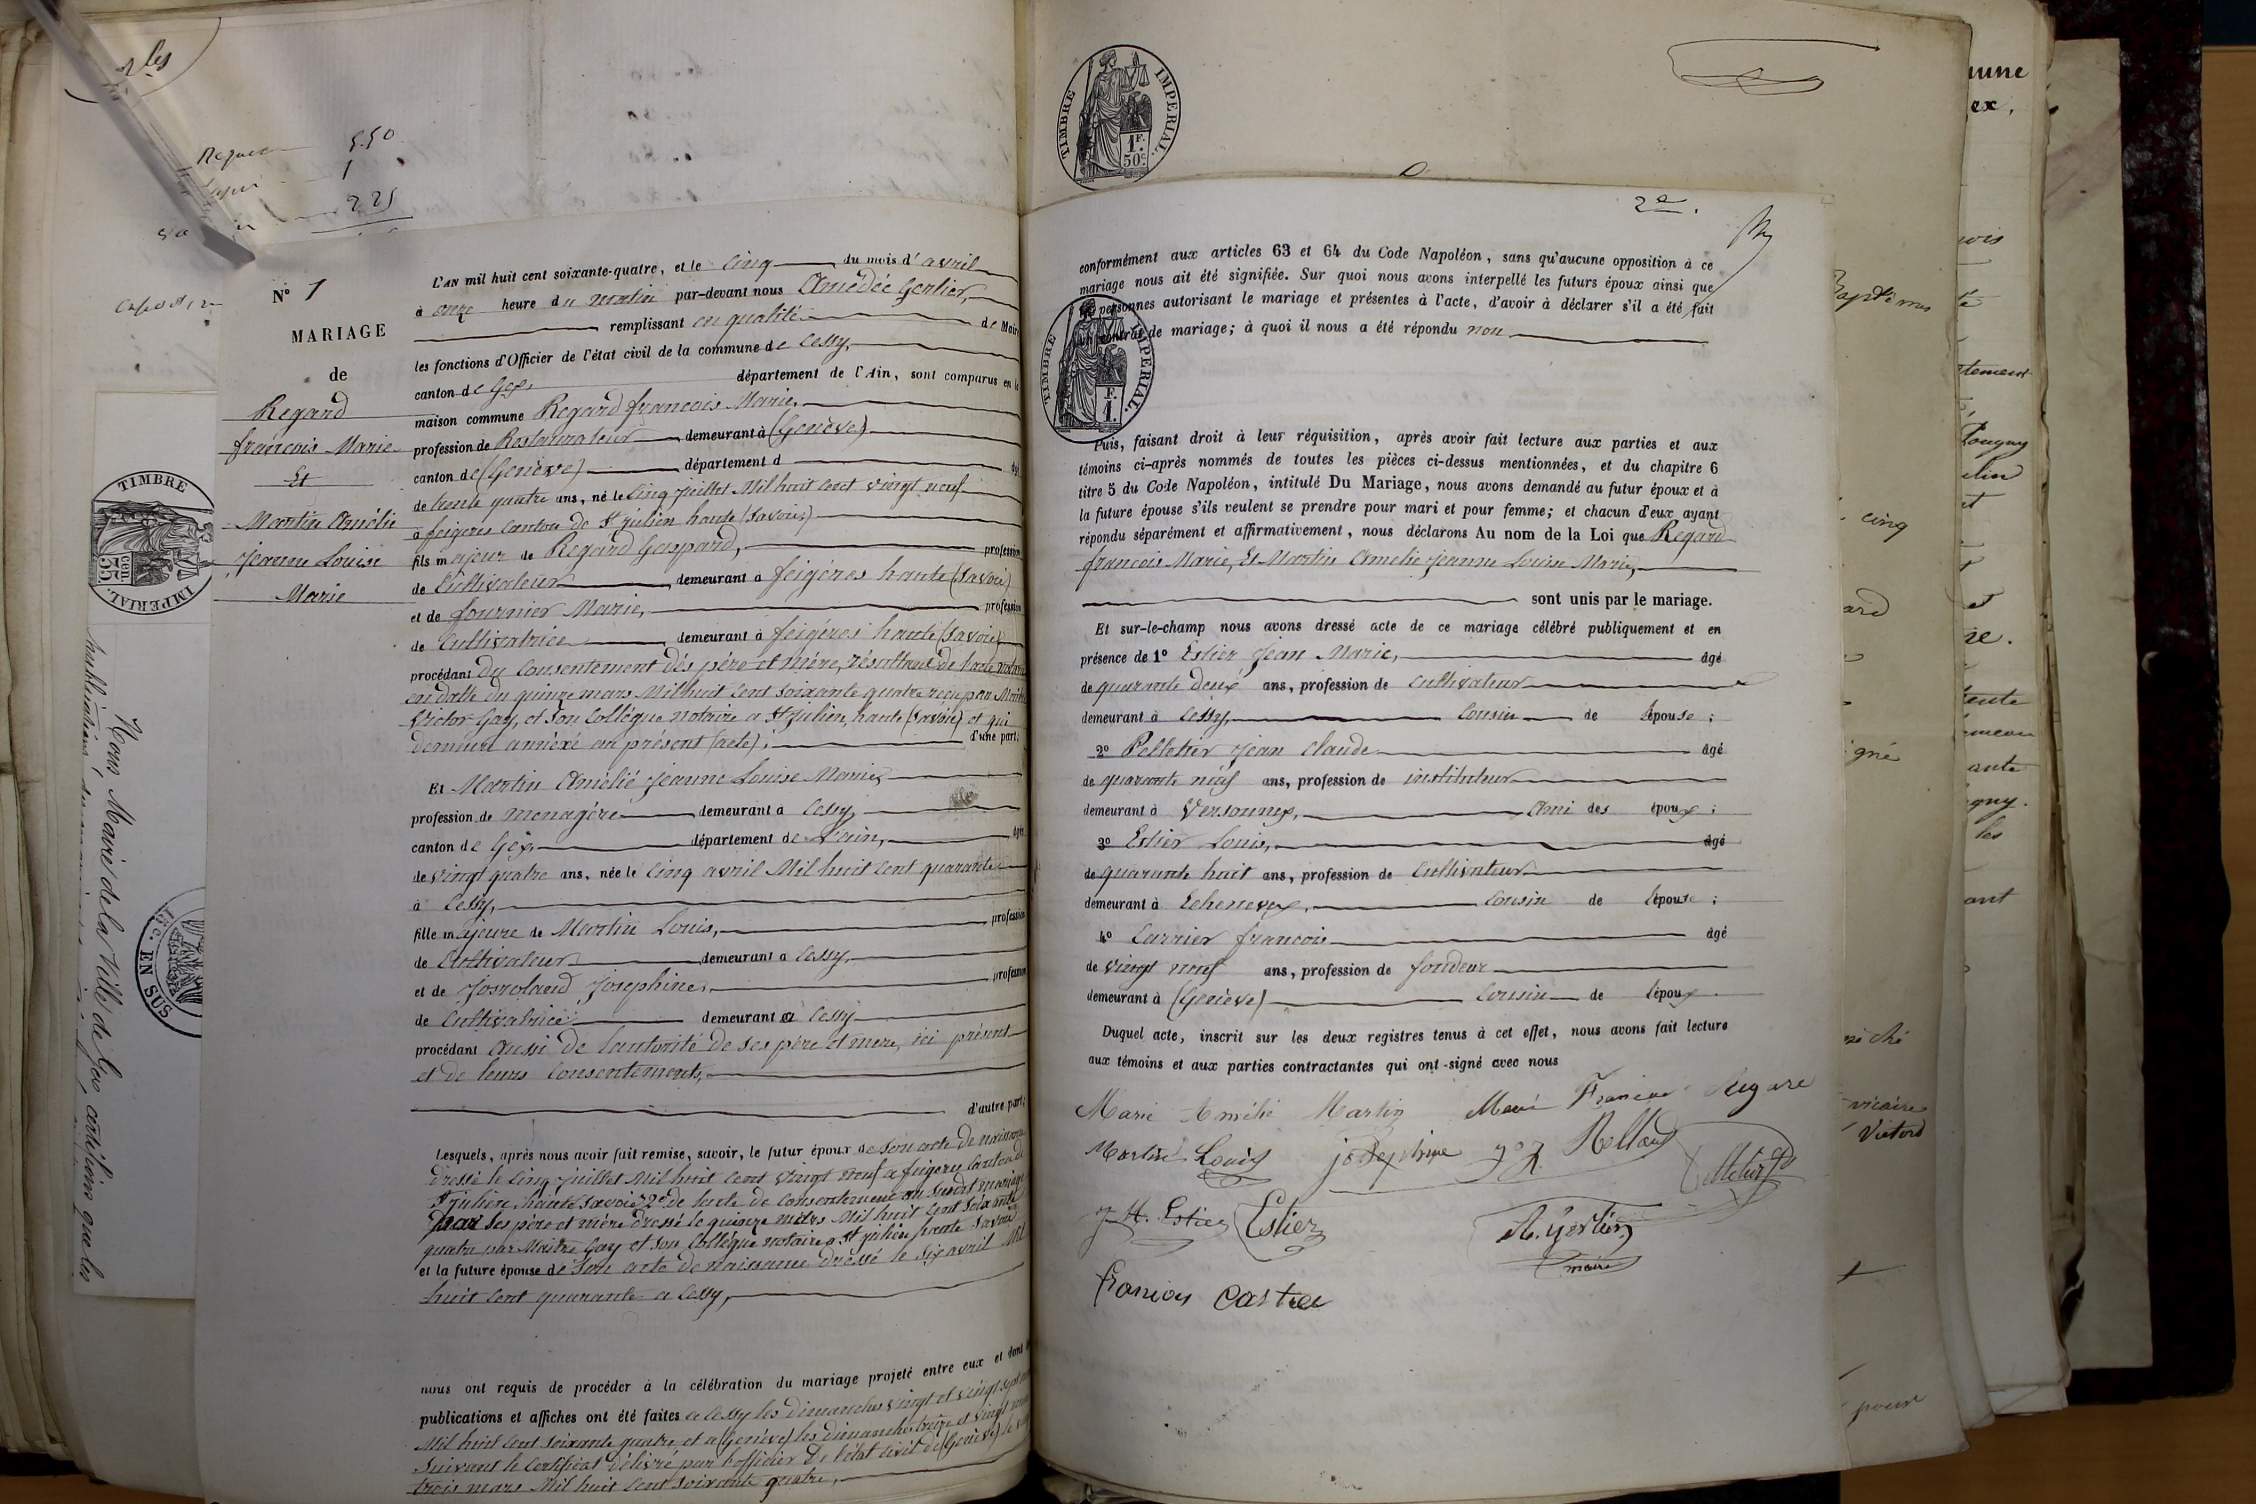 2les
5.50
1
2 25
N° 1
MARIAGE
de
Regard
françois Marie
Et
Martin Amélie
Jeanne Louise
Marie
L'AN mil huit cent soixante-quatre, et le Cinq du mois d'avril
à onze heure du matin par-devant nous Amédée Gerlier,
remplissant en qualité de Maire
les fonctions d'Officier de l'état civil de la commune de Cessy,
canton de Gex, département de l'Ain, sont comparus en la
maison commune Regard françois Marie,
profession de Restaurateur demeurant à (Genève)
canton de (Genève) département d âgé
de trente quatre ans, né le Cinq Juillet Mil huit Cent vingt neuf
à feigères Canton de St Julien haute (Savoie)
fils majeur de Regard Gaspard, profession
de Cultivateur demeurant à feigères haute (Savoie)
et de fournier Marie, profession
de Cultivatrice demeurant à feigères haute (Savoie)
procédant du Consentement dés père et mère, résultant de l'acte notarié
en datte du quinze mars Mil huit Cent Soixante quatre reçu par Maitre
Victor Gay, et son Collégue notaire a St Julien, haute (Savoie) et qui
demeure annéxé au présent (acte); d'une part;
Et Martin Amélié Jeanne Louise Marie,
profession de menagère demeurant à Cessy,
canton de Gex, département de l'ain, âgée
de vingt quatre ans, née le Cinq avril Mil huit Cent quarante
à Cessy,
fille majeure de Martin Louis, profession
de Cultivateur demeurant à Cessy,
et de Josroland Josephine, profession
de Cultivatrice demeurant à Cessy
procédant aussi de l'autorité de ses père et mere, ici présent
et de leurs Consentements,
d'autre part;
Lesquels, après nous avoir fait remise, savoir, le futur époux de Son acte de naissance
dressé le Cinq Juillet Mil huit Cent vingt neuf a feigeres Canton de
St Julien, haute Savoie, 2e de l'acte de Consentement au Susdit mariage
par ses père et mére dressé le quinze mars Mil huit Cent Soixante
quatre par Maitre Gay et Son Collégue notaire a St Julien haute Savoie
et la future épouse de Son acte de naissance dressé le Six avril Mil
huit Cent quarante a Cessy,
nous ont requis de procéder à la célébration du mariage projeté entre eux et dont les
publications et affiches ont été faites a Cessy les dimanches vingt et vingt sept
Mil huit Cent Soixante quatre et a (Genève) les dimanches treize et vingt
Suivant le Certificat délivré par l'officier De l'état Civil de (Genève) le vingt
trois mars Mil huit Cent Soixante quatre,
TIMBRE
IMPERIAL.
35 cen.
Nous Maire de la Ville de Gex, certifions que les
publications
15 c. EN SUS
TIMBRE IMPERIAL.
1F. 50c.
2e.
conformément aux articles 63 et 64 du Code Napoléon, sans qu'aucune opposition à ce
mariage nous ait été signifiée. Sur quoi nous avons interpellé les futurs époux ainsi que
les personnes autorisant le mariage et présentes à l'acte, d'avoir à déclarer s'il a été fait
un contrat de mariage; à quoi il nous a été répondu non
TIMBRE IMPERIAL.
F. 1.
Puis, faisant droit à leur réquisition, après avoir fait lecture aux parties et aux
témoins ci-après nommés de toutes les pièces ci-dessus mentionnées, et du chapitre 6
titre 5 du Code Napoléon, intitulé Du Mariage, nous avons demandé au futur époux et à
la future épouse s'ils veulent se prendre pour mari et pour femme; et chacun d'eux ayant
répondu séparément et affirmativement, nous déclarons Au nom de la Loi que Regard
françois Marie, Et Martin Amelie Jeanne Louise Marie,
sont unis par le mariage.
Et sur-le-champ nous avons dressé acte de ce mariage célébré publiquement et en
présence de 1° Estier Jean Marie, âgé
de quarante deux ans, profession de Cultivateur
demeurant à Cessy, Cousin de lépouse;
2° Pelletier Jean Claude âgé
de quarante neuf ans, profession de instituteur
demeurant à Versonnex, Ami des époux;
3° Estier Louis, âgé
de quarante huit ans, profession de Cultivateur
demeurant à Echenevex, Cousin de lépouse;
4° Carrier françois âgé
de vingt neuf ans, profession de fondeur
demeurant à (Genève) Cousin de lépoux.
Duquel acte, inscrit sur les deux registres tenus à cet effet, nous avons fait lecture
aux témoins et aux parties contractantes qui ont signé avec nous
Marie Amélie Martin Marie François Regard
Martin Louis josephine Rolland Pelletier
J. M. Estier Estier A. Gerlier
maire
françois
Baptêmes
cinq
vicaire
Victord
pour